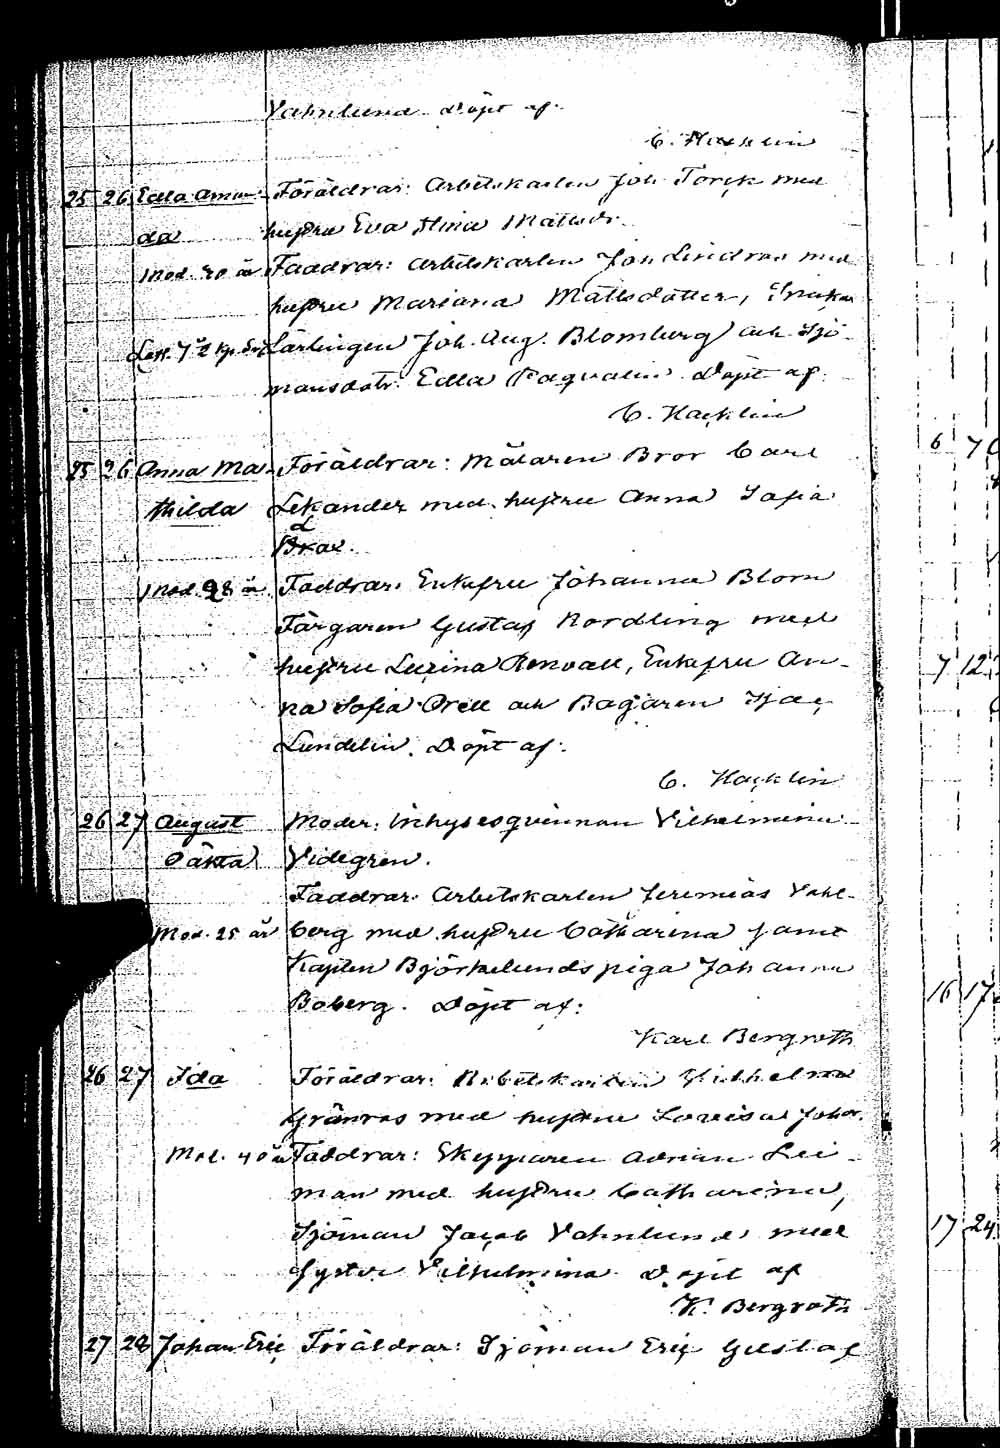 Vahnlund Döpt af.
C. Hacklin
25 26 Edla Aman- Föräldrar: Arbetskarlen Joh Torck med
da hustru Eva Stina Matsdr.
Mod. 30 år Faddrar: Arbetskarlen Joh Lindros med
hustru Mariana Mattsdotter,
Lärlingen Joh. Aug. Blomberg och Sjö-
mansdotr. Edla Döpt af.
C. Hacklin
25 26 Anna Ma- Föräldrar: Målaren Bror Carl
thilda Lekander med hustru Anna Sofia
Mod. 28 år Faddrar: Enkefru Johanna Blom
Färgaren Gustaf Nordling med
hustru Renvall, Enkefru An-
na Sofia Prell och Bagaren Isac
Lundelin. Döpt af:
C. Hacklin
26 27 August Moder: Inhysesqvinnan Vilhelmina
Videgren.
Faddrar: Arbetskarlen Jeremias Vahl-
Mod. 25 år berg med hustru Catharina samt
Kapten Björkelunds piga Johanna
Boberg. Döpt af:
Karl Bergroth
26 27 Ida Föräldrar: Arbetskarlen Vilhelm
Gränros med hustru Lovisa Johdr.
Mod. 40 år Faddrar: Skepparen Adrian Lei-
man med hustru Catharina,
Sjöman Jacob Vahnlund med
syster Vilhelmina Döpt af
K. Bergroth
27 28 Johan Eric Föräldrar: Sjöman Eric Gustaf
6 7
7 12
16 17
17 24